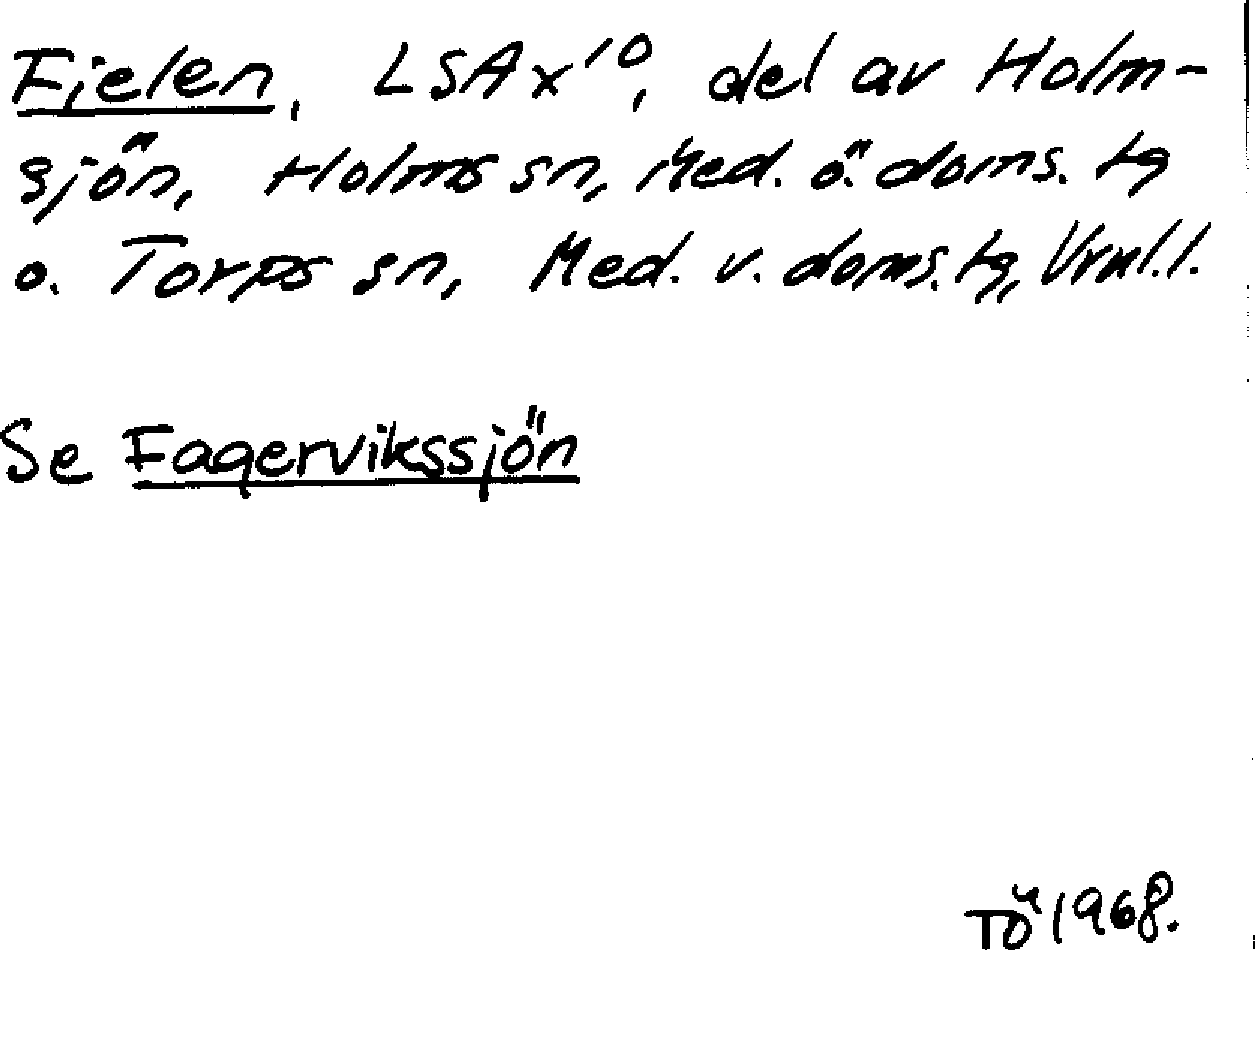 Fjelen, LSA x¹⁰, del av Holm-
sjön, Holms sn, Med. ö. doms. tg
o. Torps sn, Med. v. doms. tg, Vrnl.l.
Se Fagervikssjön
TÖ 1968.